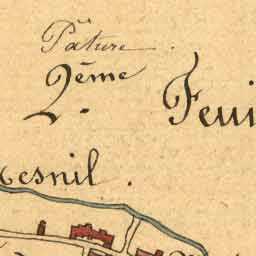 Pature.
2ème Feui
esnil.